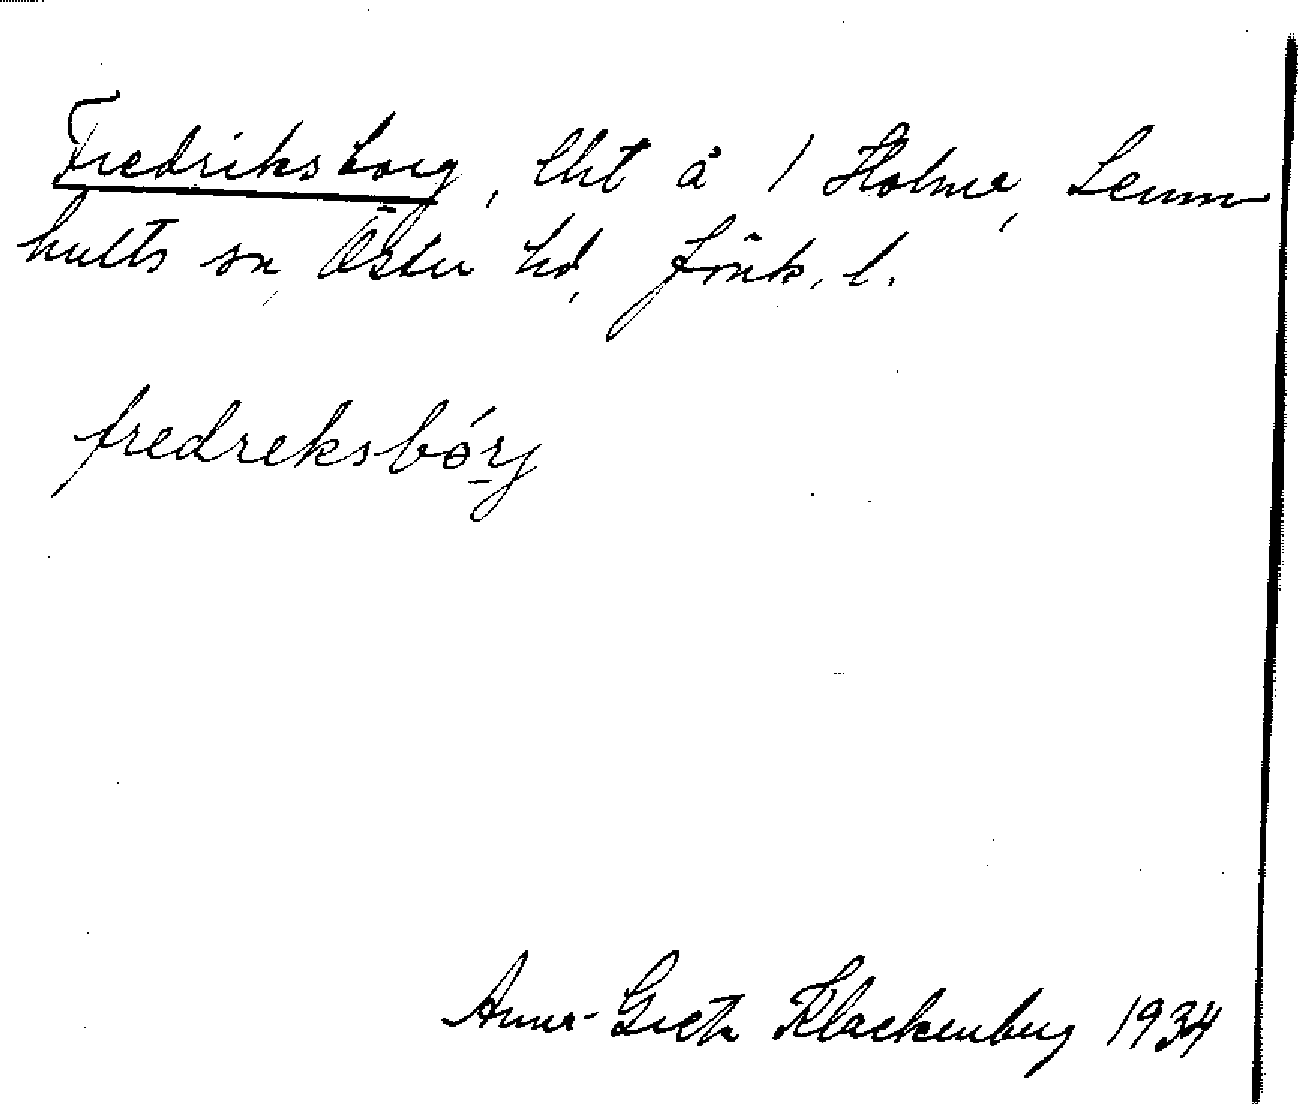 Fredriksborg, lht å 1 Holma, Lemn
hults sn, Östra hd, Jönk. l.
fredreksbórj
Anna-Greta Klackenberg 1934